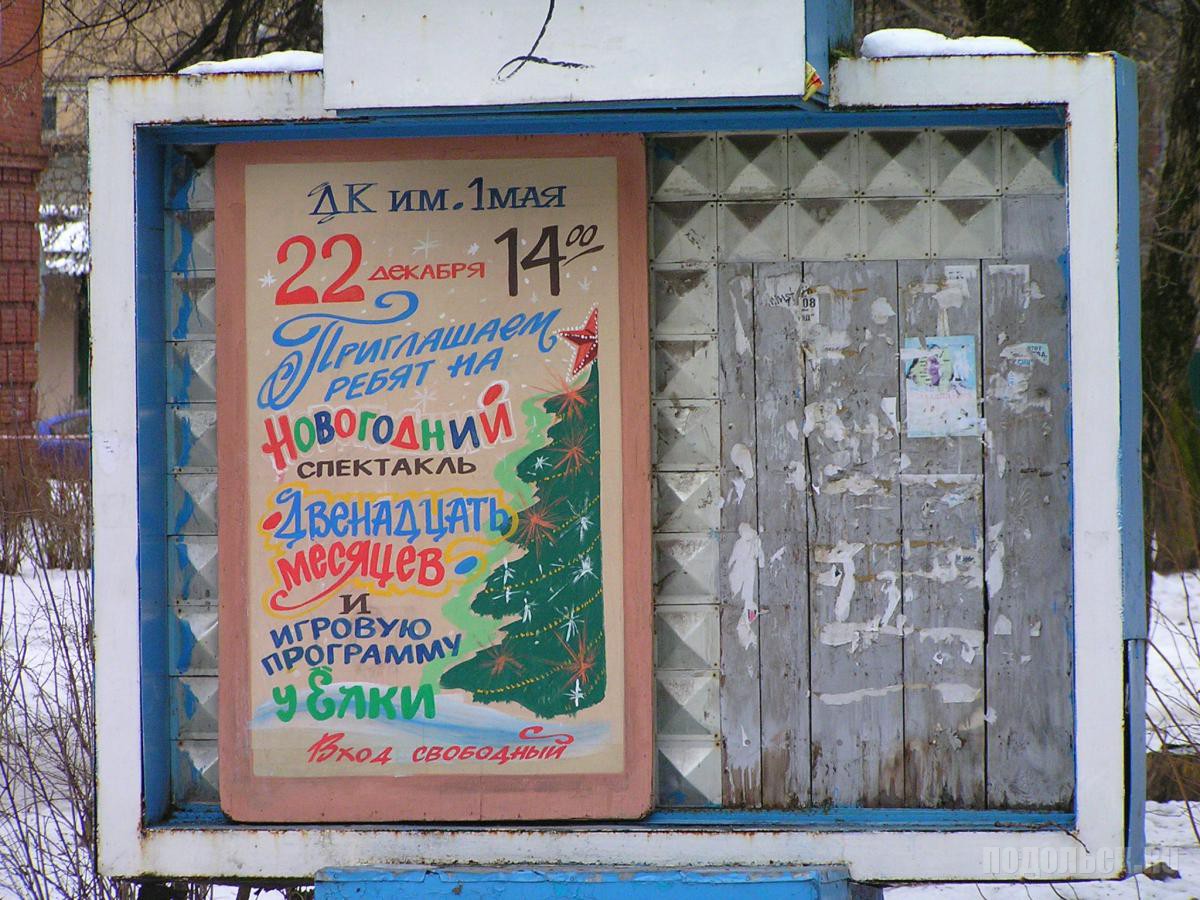 ДК им. 1 мая
22 декабря 14⁰⁰
Приглашаем
ребят на
Новогодний
спектакль
Двенадцать
месяцев
и
игровую
программу
у Ёлки
Вход свободный
08
подольск.ру